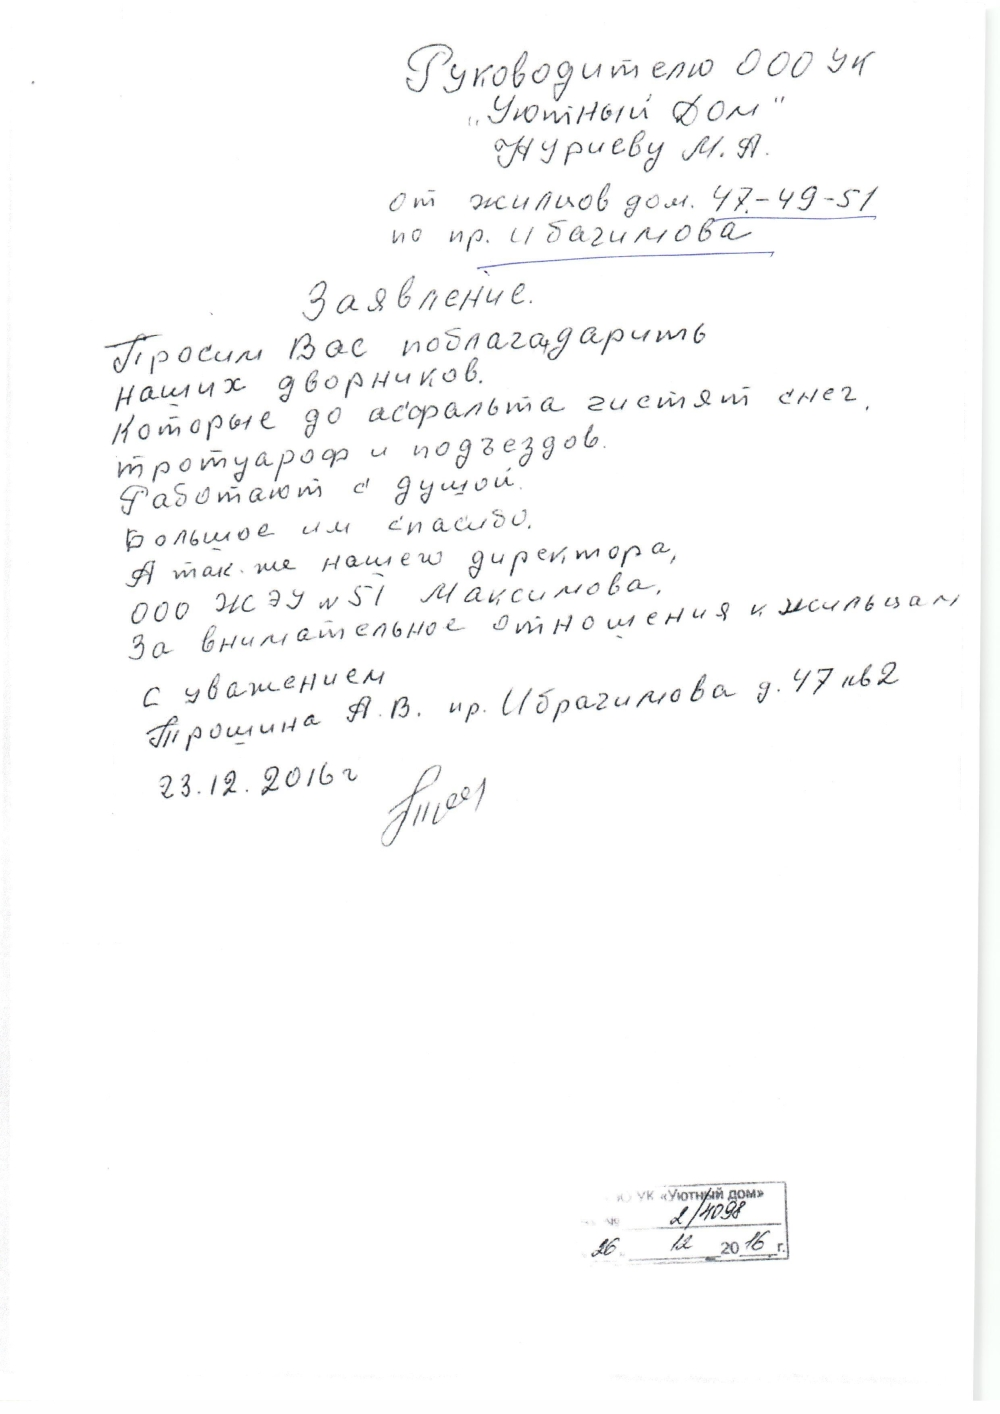 Руководителю ООО УК
"Уютный Дом"
Нуриеву М.А.
от жилцов дом. 47-49-51
по пр. Ибагимова
Заявление.
Просим Вас поблагадарить
наших дворников.
Которые до асфальта гистят снег,
тротуароф и подъездов.
Работают с душой.
Большое им спасибо.
А так же нашего директора,
ООО ЖЭУ N 51 Максимова,
За внимательное отношения к жильцам
С уважением
Трошина А.В. пр. Ибрагимова д. 47 кв 2
23.12.2016 г
УК «Уютный дом»
№ 2/4098
26 12 2016 г.